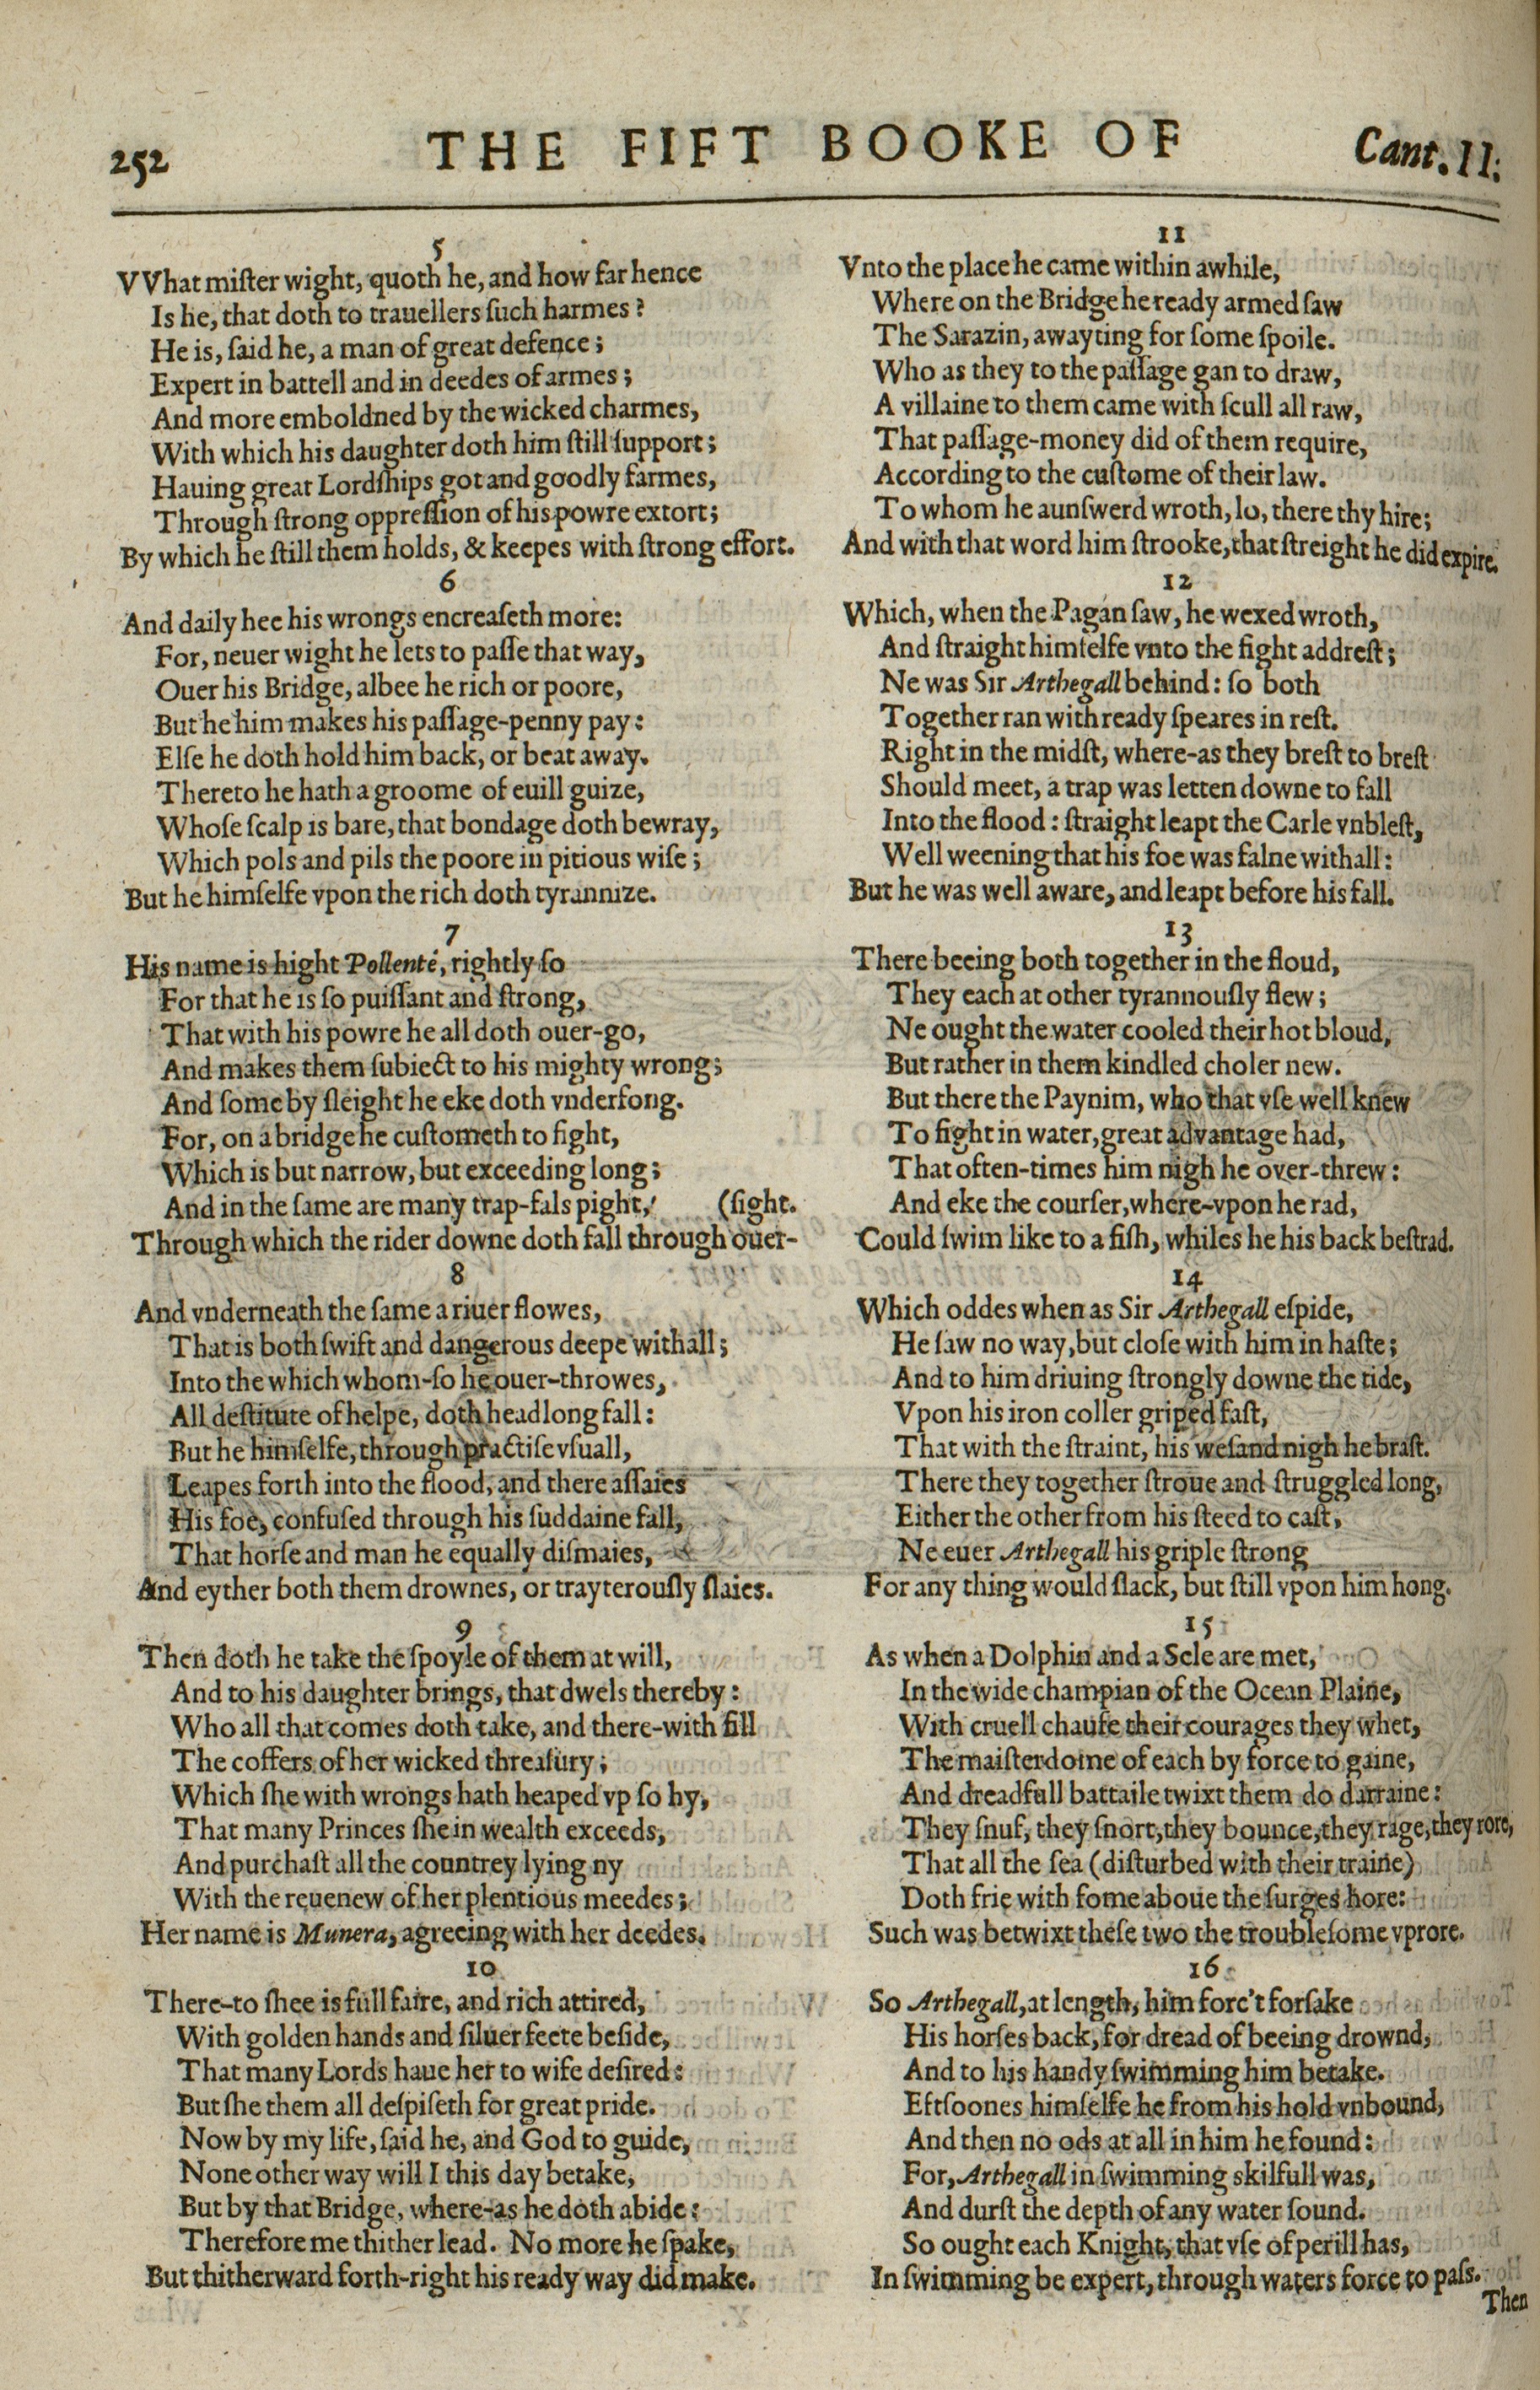 252
THE FIFT BOOKE OF
Cant. II.
5
VVhat miſter wight, quoth he, and how far hence
Is he, that doth to trauellers ſuch harmes?
He is, ſaid he, a man of great defence;
Expert in battell and in deedes of armes;
And more emboldned by the wicked charmes,
With which his daughter doth him ſtill ſupport;
Hauing great Lordſhips got and goodly farmes,
Through ſtrong oppreſſion of his powre extort;
By which he ſtill them holds, & keepes with ſtrong effort.
6
And daily hee his wrongs encreaſeth more:
For, neuer wight he lets to paſſe that way,
Ouer his Bridge, albee he rich or poore,
But he him makes his paſſage-penny pay:
Elſe he doth hold him back, or beat away.
Thereto he hath a groome of euill guize,
Whoſe ſcalp is bare, that bondage doth bewray,
Which pols and pils the poore in pitious wiſe;
But he himſelfe vpon the rich doth tyrannize.
7
His name is hight Pollentè, rightly ſo
For that he is ſo puiſſant and ſtrong,
That with his powre he all doth ouer-go,
And makes them ſubiect to his mighty wrong;
And ſome by ſleight he eke doth vnderfong.
For, on a bridge he cuſtometh to fight,
Which is but narrow, but exceeding long;
And in the ſame are many trap-fals pight, (ſight.
Through which the rider downe doth fall through ouer-
8
And vnderneath the ſame a riuer flowes,
That is both ſwift and dangerous deepe withall;
Into the which whom-ſo he ouer-throwes,
All deſtitute of helpe, doth headlong fall:
But he himſelfe, through practiſe vſuall,
Leapes forth into the flood, and there aſſaies
His foe, confuſed through his ſuddaine fall,
That horſe and man he equally diſmaies,
And eyther both them drownes, or trayterouſly ſlaies.
9
Then doth he take the ſpoyle of them at will,
And to his daughter brings, that dwels thereby:
Who all that comes doth take, and there-with fill
The coffers of her wicked threaſury;
Which ſhe with wrongs hath heaped vp ſo hy,
That many Princes ſhe in wealth exceeds,
And purchaſt all the countrey lying ny
With the reuenew of her plentious meedes;
Her name is Munera, agreeing with her deedes.
10
There-to ſhee is full faire, and rich attired,
With golden hands and ſiluer feete beſide,
That many Lords haue her to wife deſired:
But ſhe them all deſpiſeth for great pride.
Now by my life, ſaid he, and God to guide,
None other way will I this day betake,
But by that Bridge, where-as he doth abide:
Therefore me thither lead. No more he ſpake,
But thitherward forth-right his ready way did make.
11
Vnto the place he came within awhile,
Where on the Bridge he ready armed ſaw
The Sarazin, awayting for ſome ſpoile.
Who as they to the paſſage gan to draw,
A villaine to them came with ſcull all raw,
That paſſage-money did of them require,
According to the cuſtome of their law.
To whom he aunſwerd wroth, lo, there thy hire;
And with that word him ſtrooke, that ſtreight he did expire.
12
Which, when the Pagan ſaw, he wexed wroth,
And ſtraight himſelfe vnto the fight addreſt;
Ne was Sir Arthegall behind: ſo both
Together ran with ready ſpeares in reſt.
Right in the midſt, where-as they breſt to breſt
Should meet, a trap was letten downe to fall
Into the flood: ſtraight leapt the Carle vnbleſt,
Well weening that his foe was falne withall:
But he was well aware, and leapt before his fall.
13
There beeing both together in the floud,
They each at other tyrannouſly flew;
Ne ought the water cooled their hot bloud,
But rather in them kindled choler new.
But there the Paynim, who that vſe well knew
To fight in water, great advantage had,
That often-times him nigh he over-threw:
And eke the courſer, where-vpon he rad,
Could ſwim like to a fiſh, whiles he his back beſtrad.
14
Which oddes when as Sir Arthegall eſpide,
He ſaw no way, but cloſe with him in haſte;
And to him driuing ſtrongly downe the tide,
Vpon his iron coller griped faſt,
That with the ſtraint, his weſand nigh he braſt.
There they together ſtroue and ſtruggled long,
Either the other from his ſteed to caſt,
Ne euer Arthegall his griple ſtrong
For any thing would ſlack, but ſtill vpon him hong.
15
As when a Dolphin and a Sele are met,
In the wide champian of the Ocean Plaine,
With cruell chaufe their courages they whet,
The maiſterdome of each by force to gaine,
And dreadfull battaile twixt them do darraine:
They ſnuf, they ſnort, they bounce, they rage, they rore,
That all the ſea (diſturbed with their traine)
Doth frie with fome aboue the ſurges hore:
Such was betwixt theſe two the troubleſome vprore.
16
So Arthegall, at length, him forc't forſake
His horſes back, for dread of beeing drownd,
And to his handy ſwimming him betake.
Eftſoones himſelfe he from his hold vnbound,
And then no ods at all in him he found:
For, Arthegall in ſwimming skilfull was,
And durſt the depth of any water ſound.
So ought each Knight, that vſe of perill has,
In ſwimming be expert, through waters force to paſs.
Then